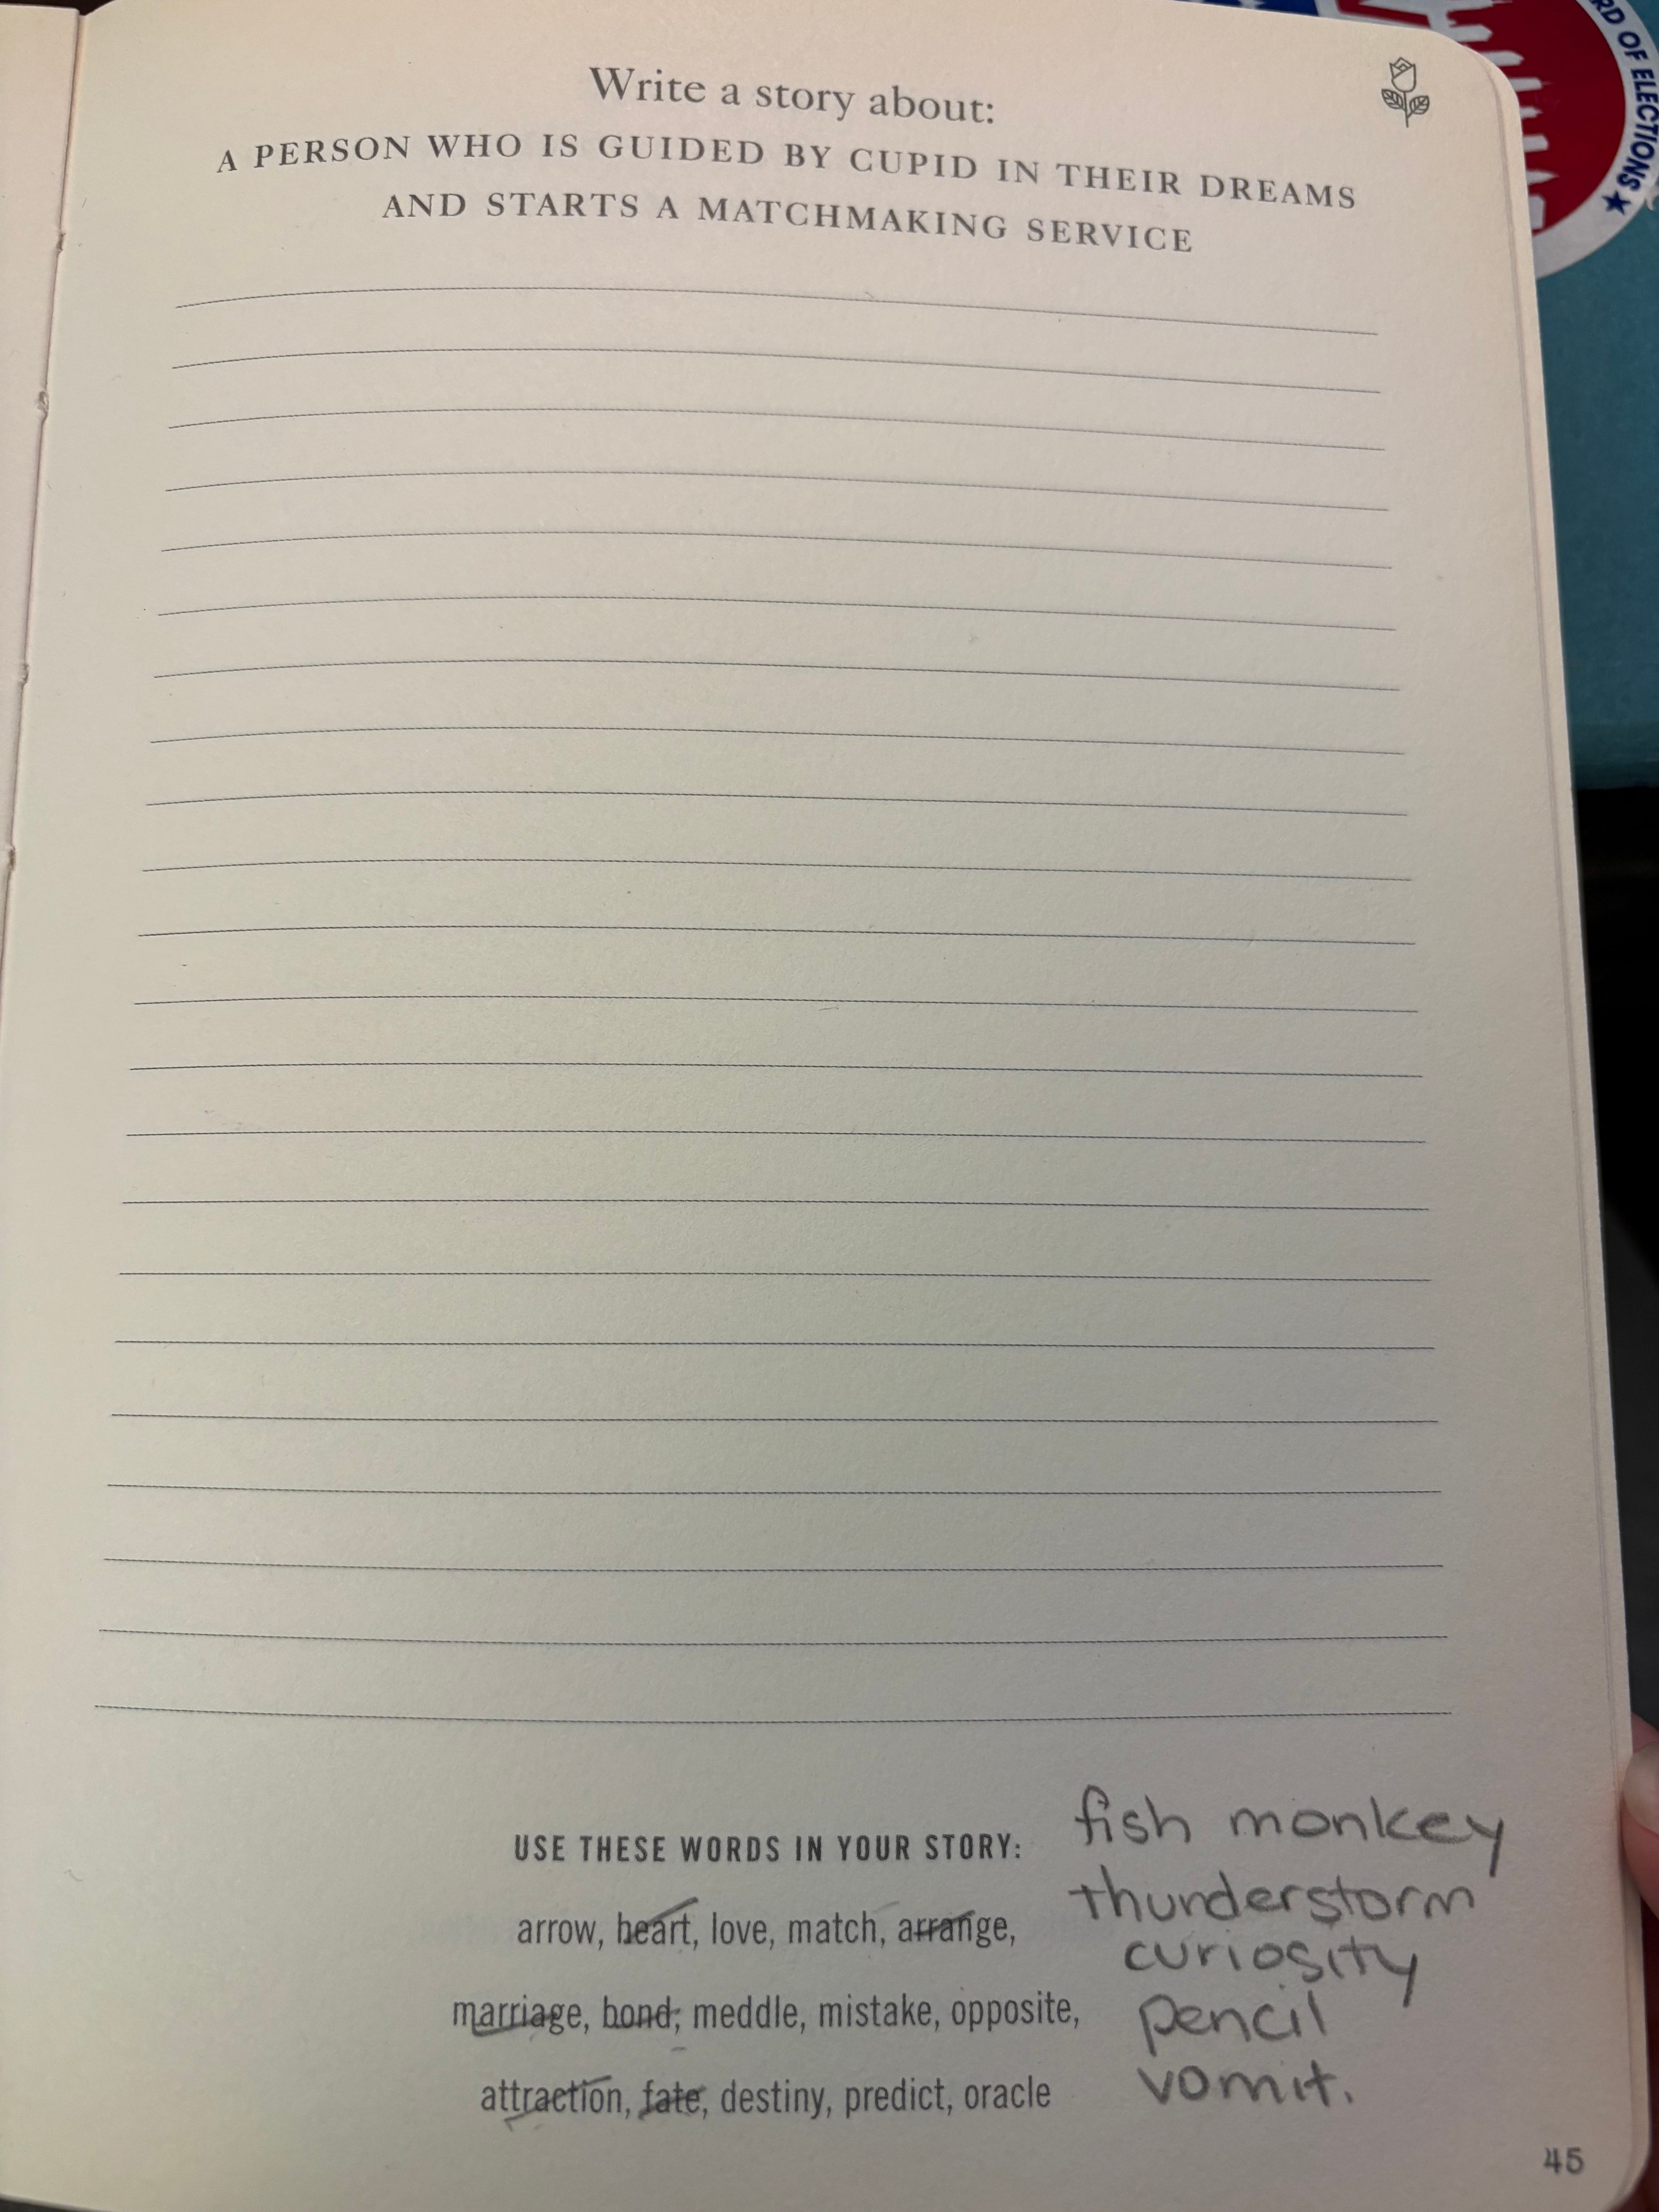 RD OF ELECTIONS ★
Write a story about:
A PERSON WHO IS GUIDED BY CUPID IN THEIR DREAMS
AND STARTS A MATCHMAKING SERVICE
USE THESE WORDS IN YOUR STORY:
arrow, heart, love, match, arrange,
marriage, bond, meddle, mistake, opposite,
attraction, fate, destiny, predict, oracle
fish monkey
thunderstorm
curiosity
pencil
vomit.
45